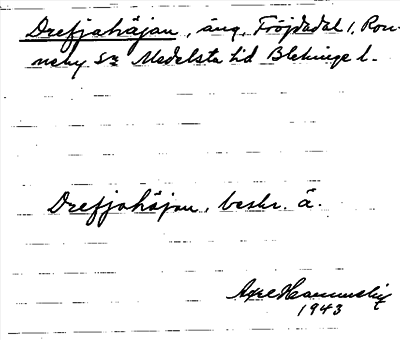 Drefjahäjan, äng, Fröjdadal 1, Ron-
neby sn Medelsta hd Blekinge l.
Drefjahäjan, beskr. ä.
Axel Hammerstig
1943